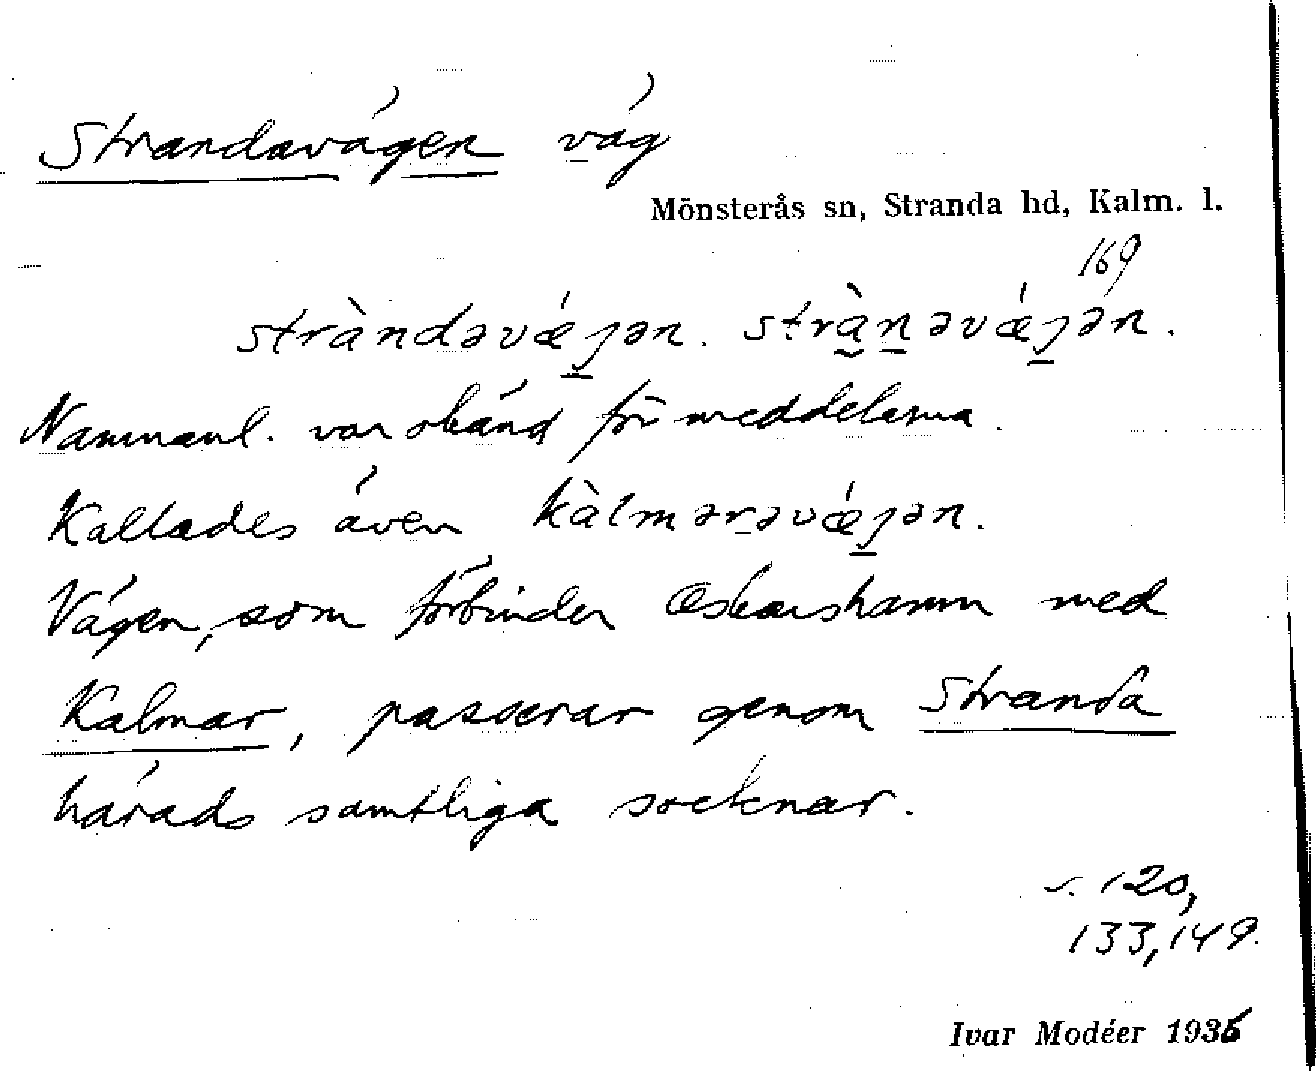 Strandavägen väg
Mönsterås sn, Stranda hd, Kalm. l.
169
stràndəvǽȷən. stràn̠əvǽȷən.
Namnanl. var okänd för meddelarna.
Kallades även kàlmərəvǽȷən.
Vägen, som förbinder Oskarshamn med
Kalmar, passerar genom Stranda
härads samtliga socknar.
s. 120,
133, 149.
Ivar Modéer 1936